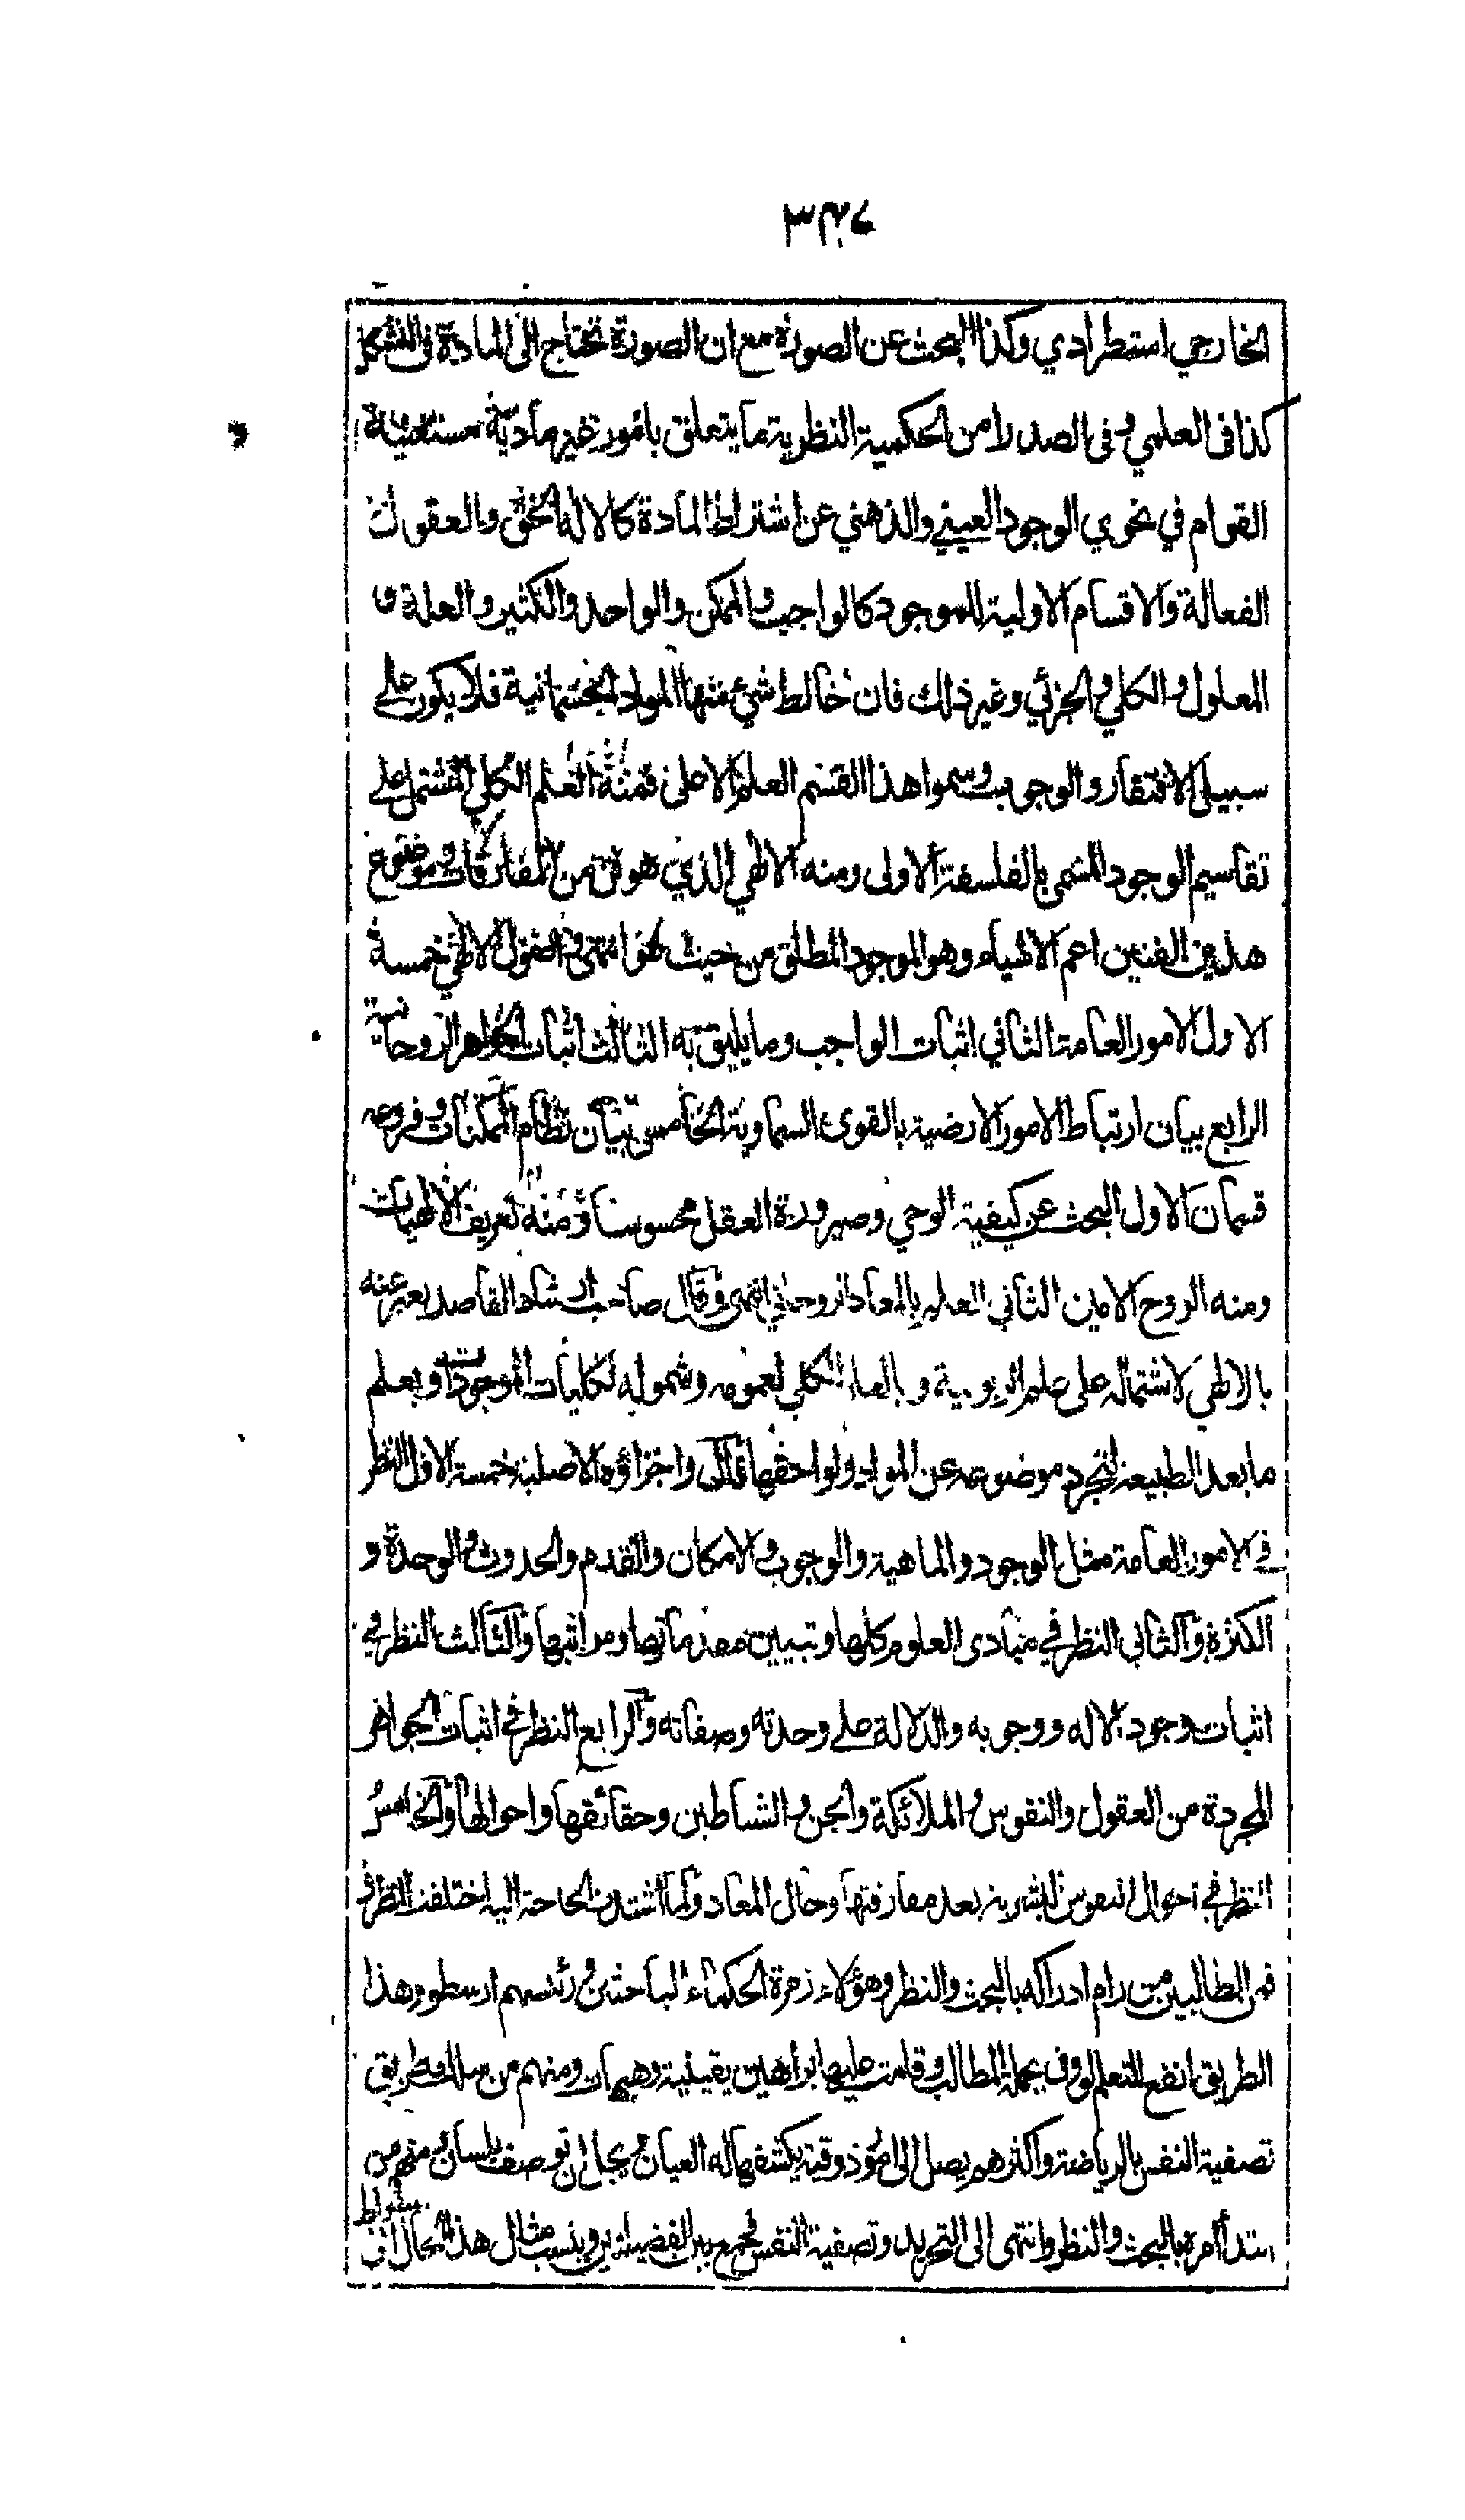 ٣٤٧
الخارجي استطرادي وكذا البحث عن الصورة مع ان الصورة تحتاج الى المادة فى التشكل
كذا فى العلمي وفى الصدرا من الحكمية النظرية ما يتعلق بامور غير مادية مستغنية
القوام في نحوي الوجود العيني والذهني عن اشتراط المادة كالاله الحق والعقول
الفعالة والاقسام الاولية للموجود كالواجب والممكن والواحد والكثير والعلة و
المعلول والكلي والجزئي وغير ذلك فان خالط شئ منها المواد الجسمانية فلا يكون على
سبيل الافتقار والوجوب وسموا هذا القسم العلم الاعلى فمنه العلم الكلي المشتمل على
تقاسيم الوجود المسمى بالفلسفة الاولى ومنه الالهي الذي هو فن من المفارقات وموضوع
هذين الفنين اعم الاشياء وهو الموجود المطلق من حيث هو انتهى واصول الالهي خمسة
الاول الامور العامة الثاني اثبات الواجب وما يليق به الثالث اثبات الجواهر الروحانية
الرابع بيان ارتباط الامور الارضية بالقوى السماوية الخامس بيان نظام الممكنات وفروعه
قسمان الاول البحث عن كيفية الوحي وصيرورة العقل محسوسا ومنه تعريف الالهيات
ومنه الروح الامين الثاني العلم بالمعاد الروحاني انتهى وقال صاحب ارشاد القاصد يعبر عنه
بالالهي لاشتماله على علم الربوبية وبالعلم الكلي لعمومه وشموله لكليات الموجودات وبعلم
ما بعد الطبيعة لتجرد موضوعه عن المواد ولواحقها قال واجزاؤه الاصلية خمسة الاول النظر
في الامور العامة مثل الوجود والماهية والوجوب والامكان والقدم والحدوث والوحدة و
الكثرة والثاني النظر في مبادى العلوم كلها وتبيين مقدماتها ومراتبها والثالث النظر في
اثبات وجود الاله ووجوبه والدلالة على وحدته وصفاته والرابع النظر في اثبات الجواهر
المجردة من العقول والنفوس والملائكة والجن والشياطين وحقائقها واحوالها والخامس
النظر في احوال النفوس البشرية بعد مفارقتها وحال المعاد ولما اشتدت الحاجة اليه اختلفت الطرق
فمن الطالبين من رام ادراكه بالبحث والنظر وهؤلاء زمرة الحكماء الباحثين ورئيسهم ارسطو وهذا
الطريق انفع للتعلم لو وفى بجملة المطالب وقامت عليها براهين يقينية وهيهات ومنهم من سلك طريق
تصفية النفس بالرياضة واكثرهم يصل الى امور ذوقية يكشفها له العيان ويجل ان توصف بلسان ومنهم من
ابتدأ امره بالبحث والنظر وانتهى الى التجريد وتصفية النفس فجمع بين الفضيلتين وينسب مثال هذا الحال الى سقراط